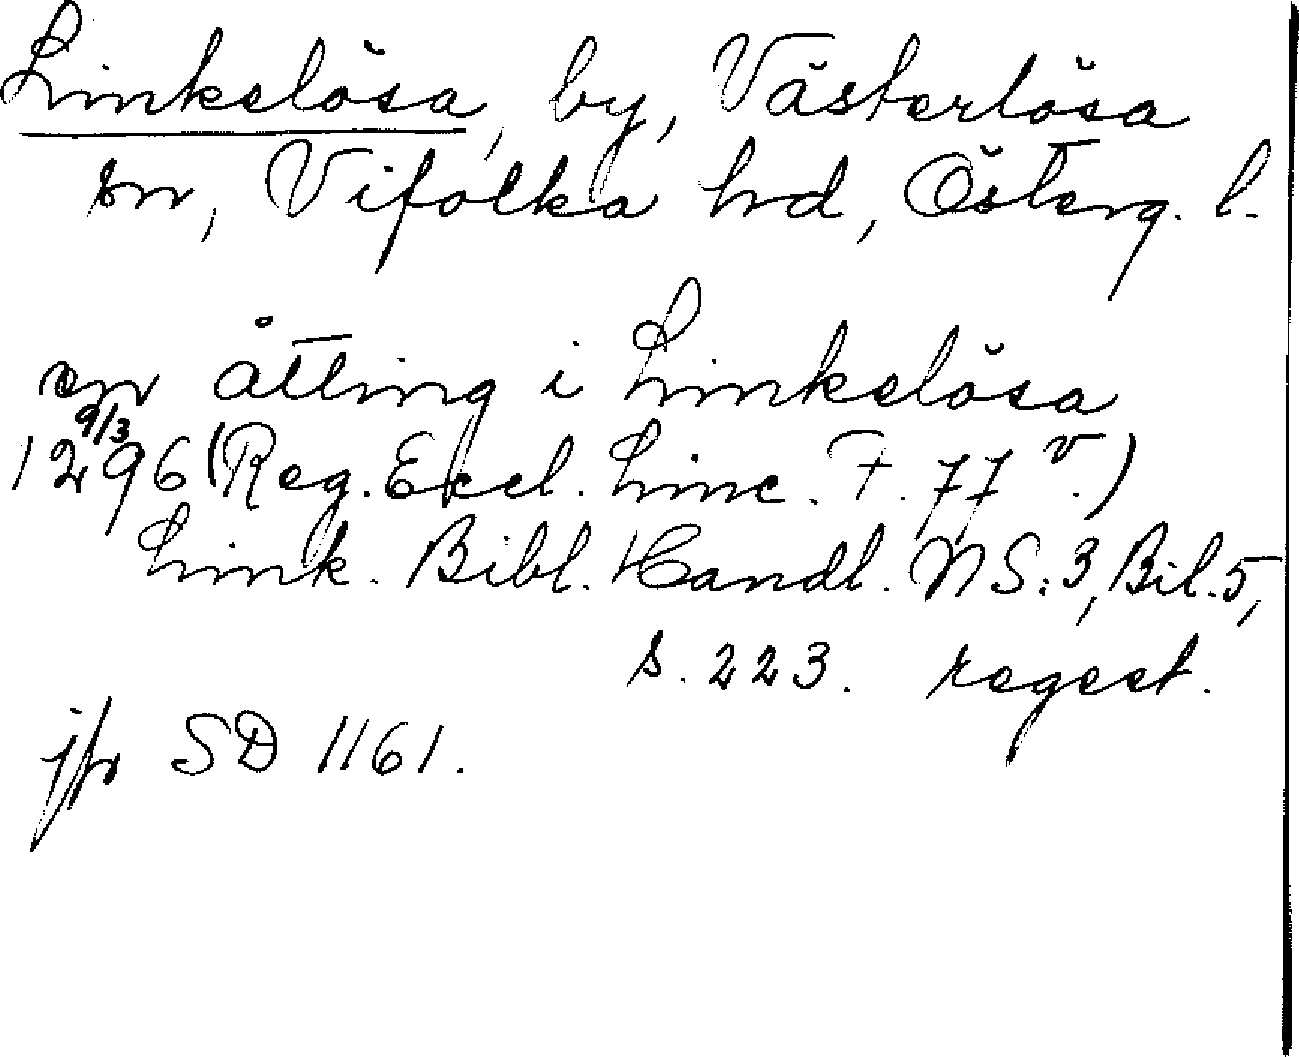 Linkelösa, by, Västerlösa
sn, Vifolka hd, Österg. l.
en åtting i Linkelösa
1296 9/3 (Reg. Eccl. Linc. F. 77 v.)
Link. Bibl. Handl. NS:3, Bil. 5,
s. 223. regest.
jfr SD 1161.